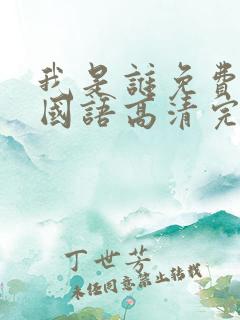 我是誰免費
國語高清完
丁世芳
未经同意禁止转载